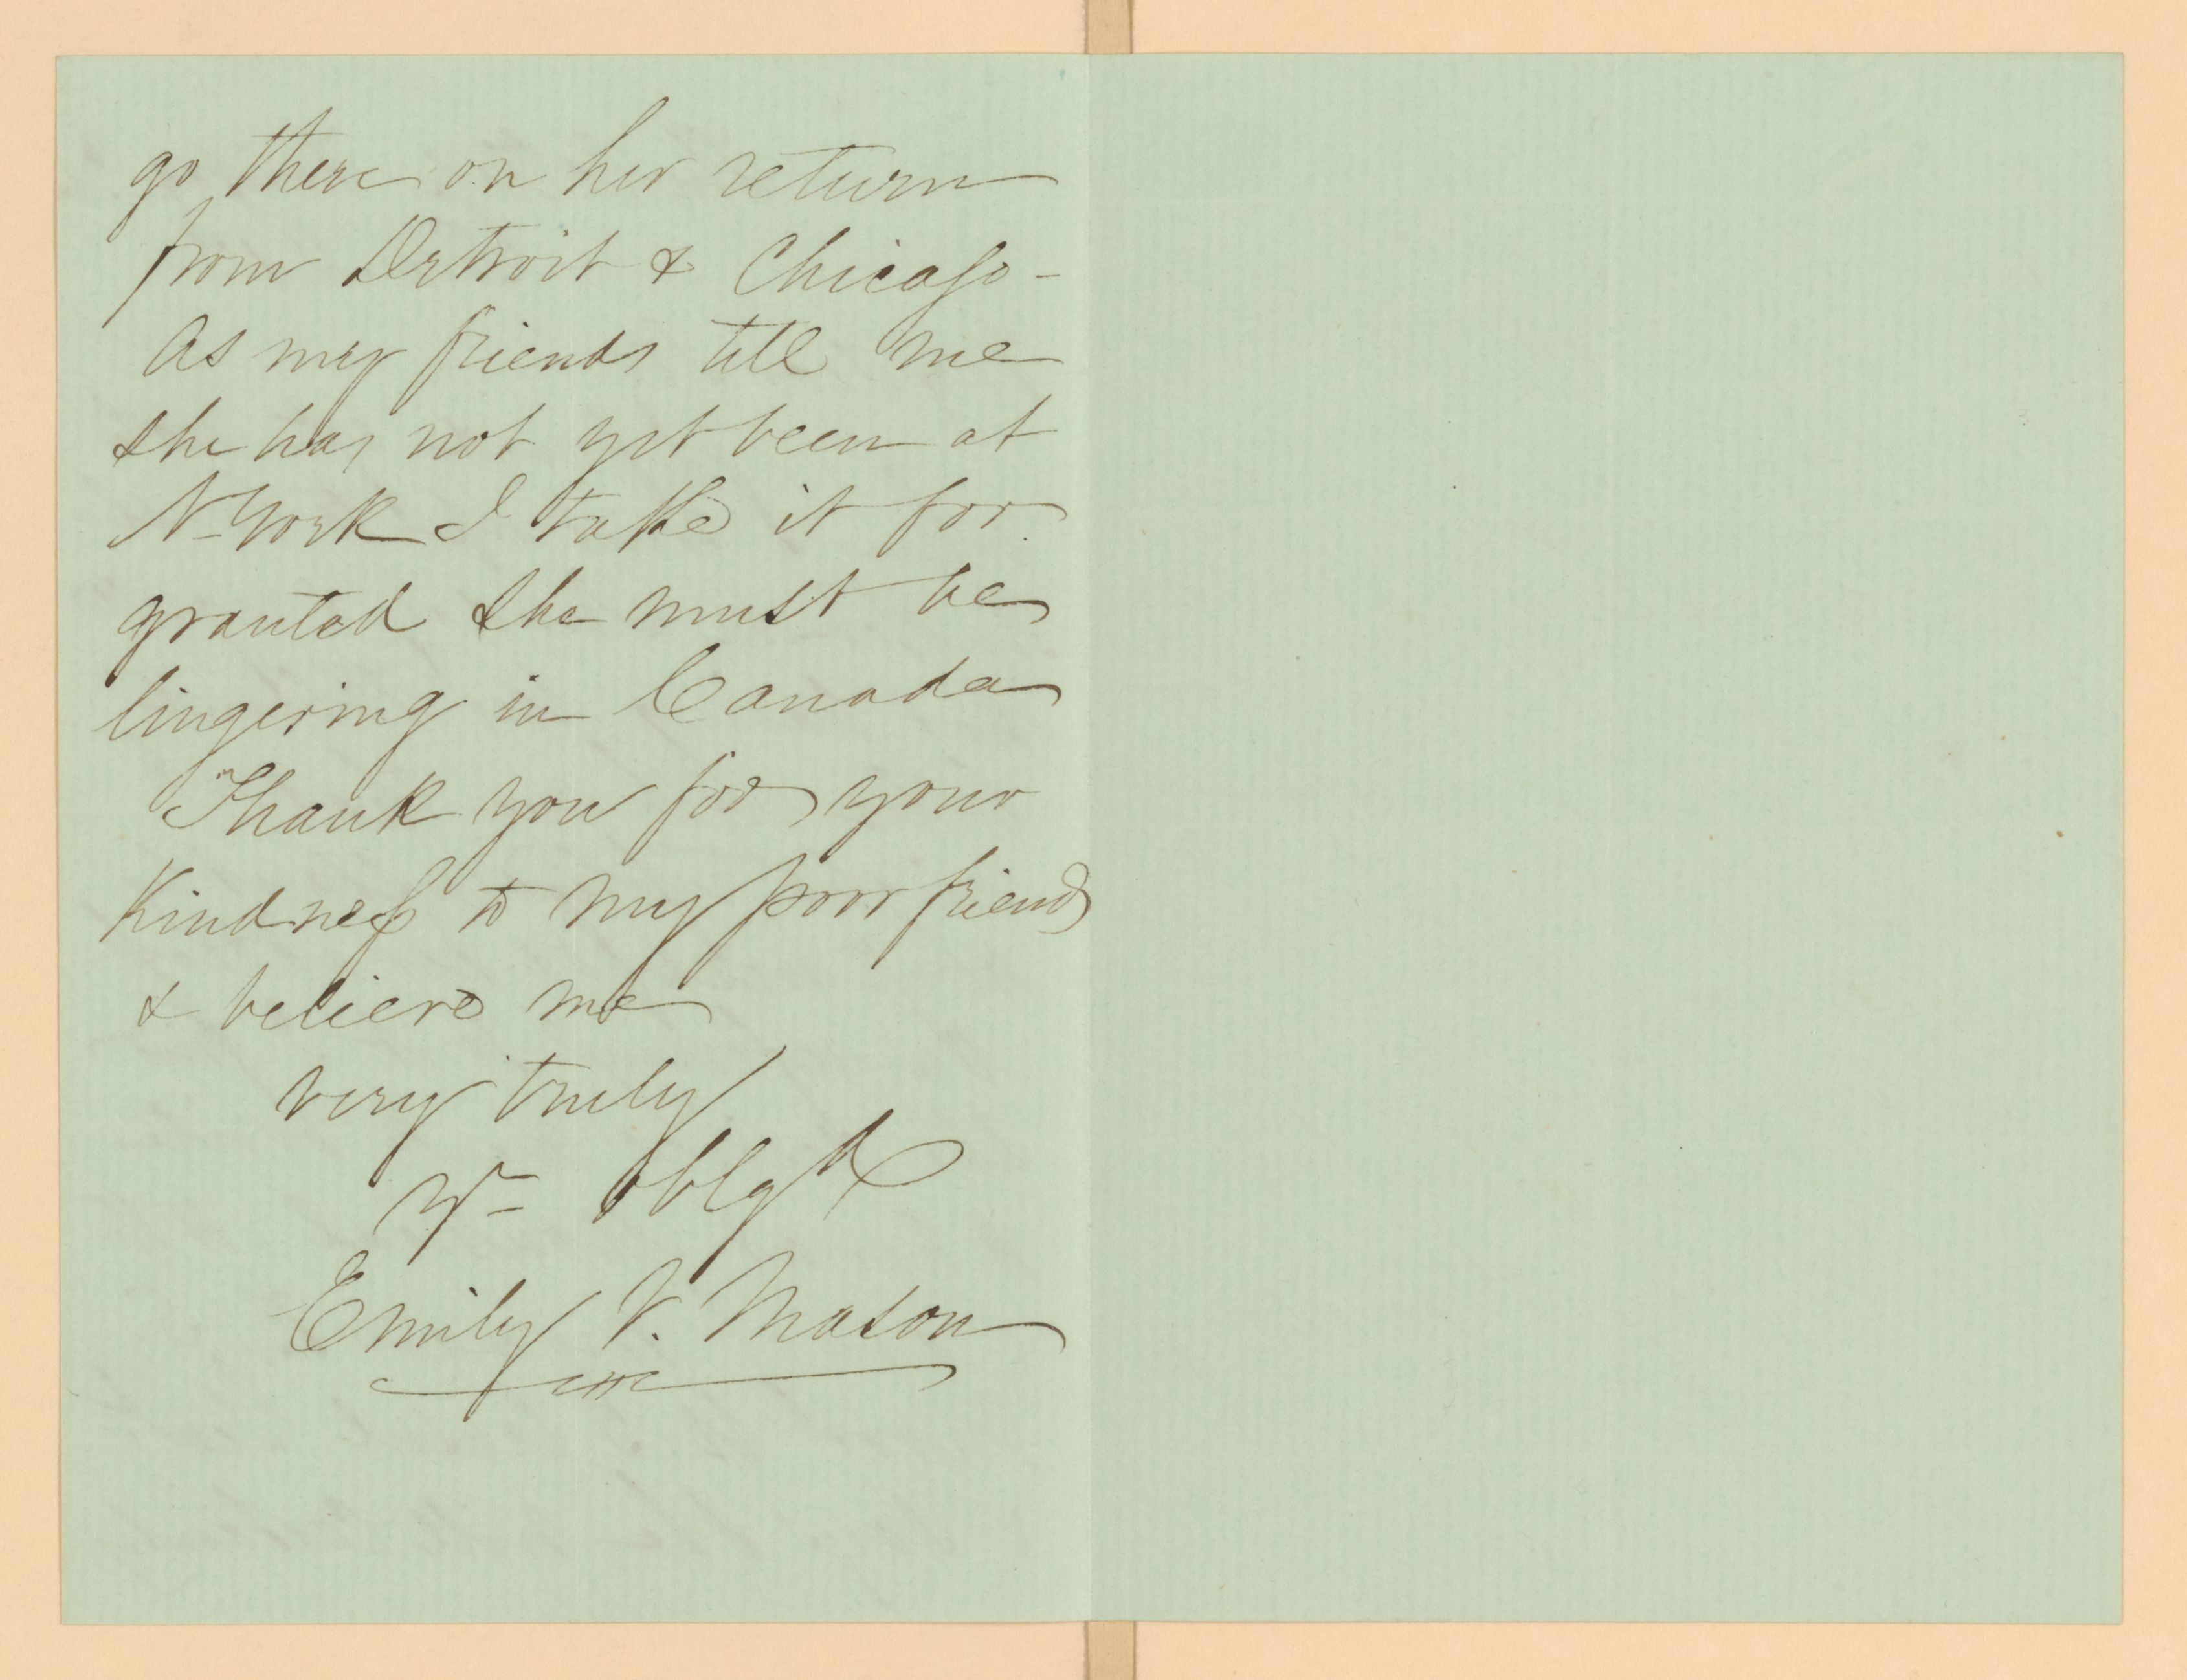 go there on her return
from Detroit & Chicago -
As my friends tell me
she has not yet been at
N-York I take it for
granted she must be
lingering in Canada
Thank you for your
Kindness to my poor friend
& believe me
very truly
Yr oblgd
Emily V. Mason